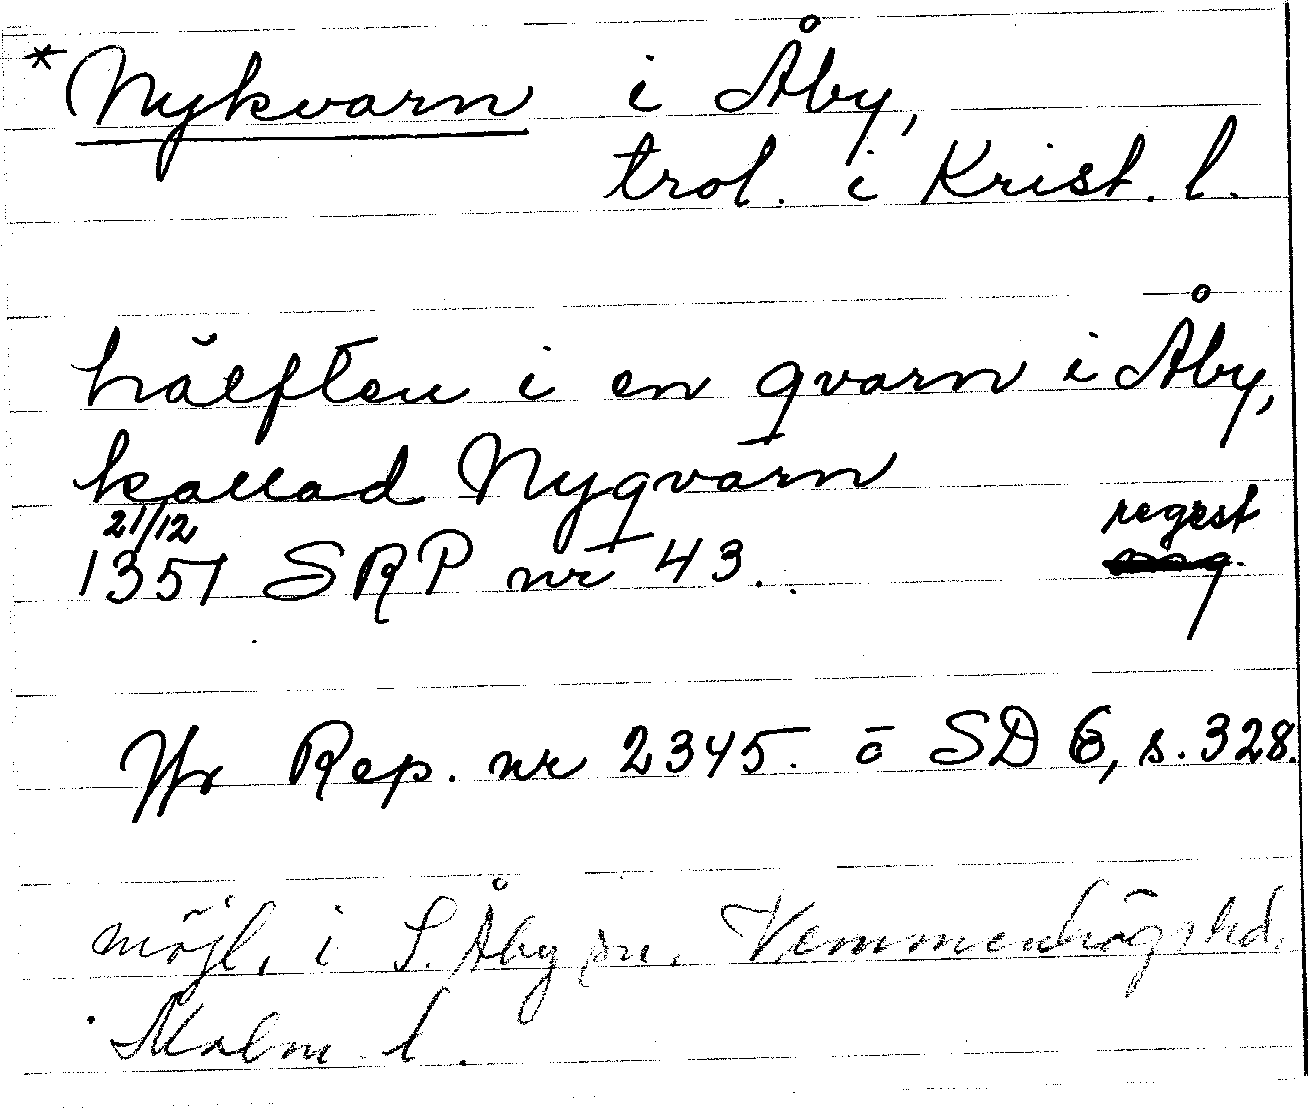 * Nykvarn i Åby,
trol. i Krist. l.
hälften i en qvarn i Åby,
kallad Nyqvarn
21/12 regest
1351 SRP nr 43.
Jfr Rep. nr 2345. o SD 6, s. 328.
möjl. i S. Åby sn. Vemmenhögs hd.
Malm l.